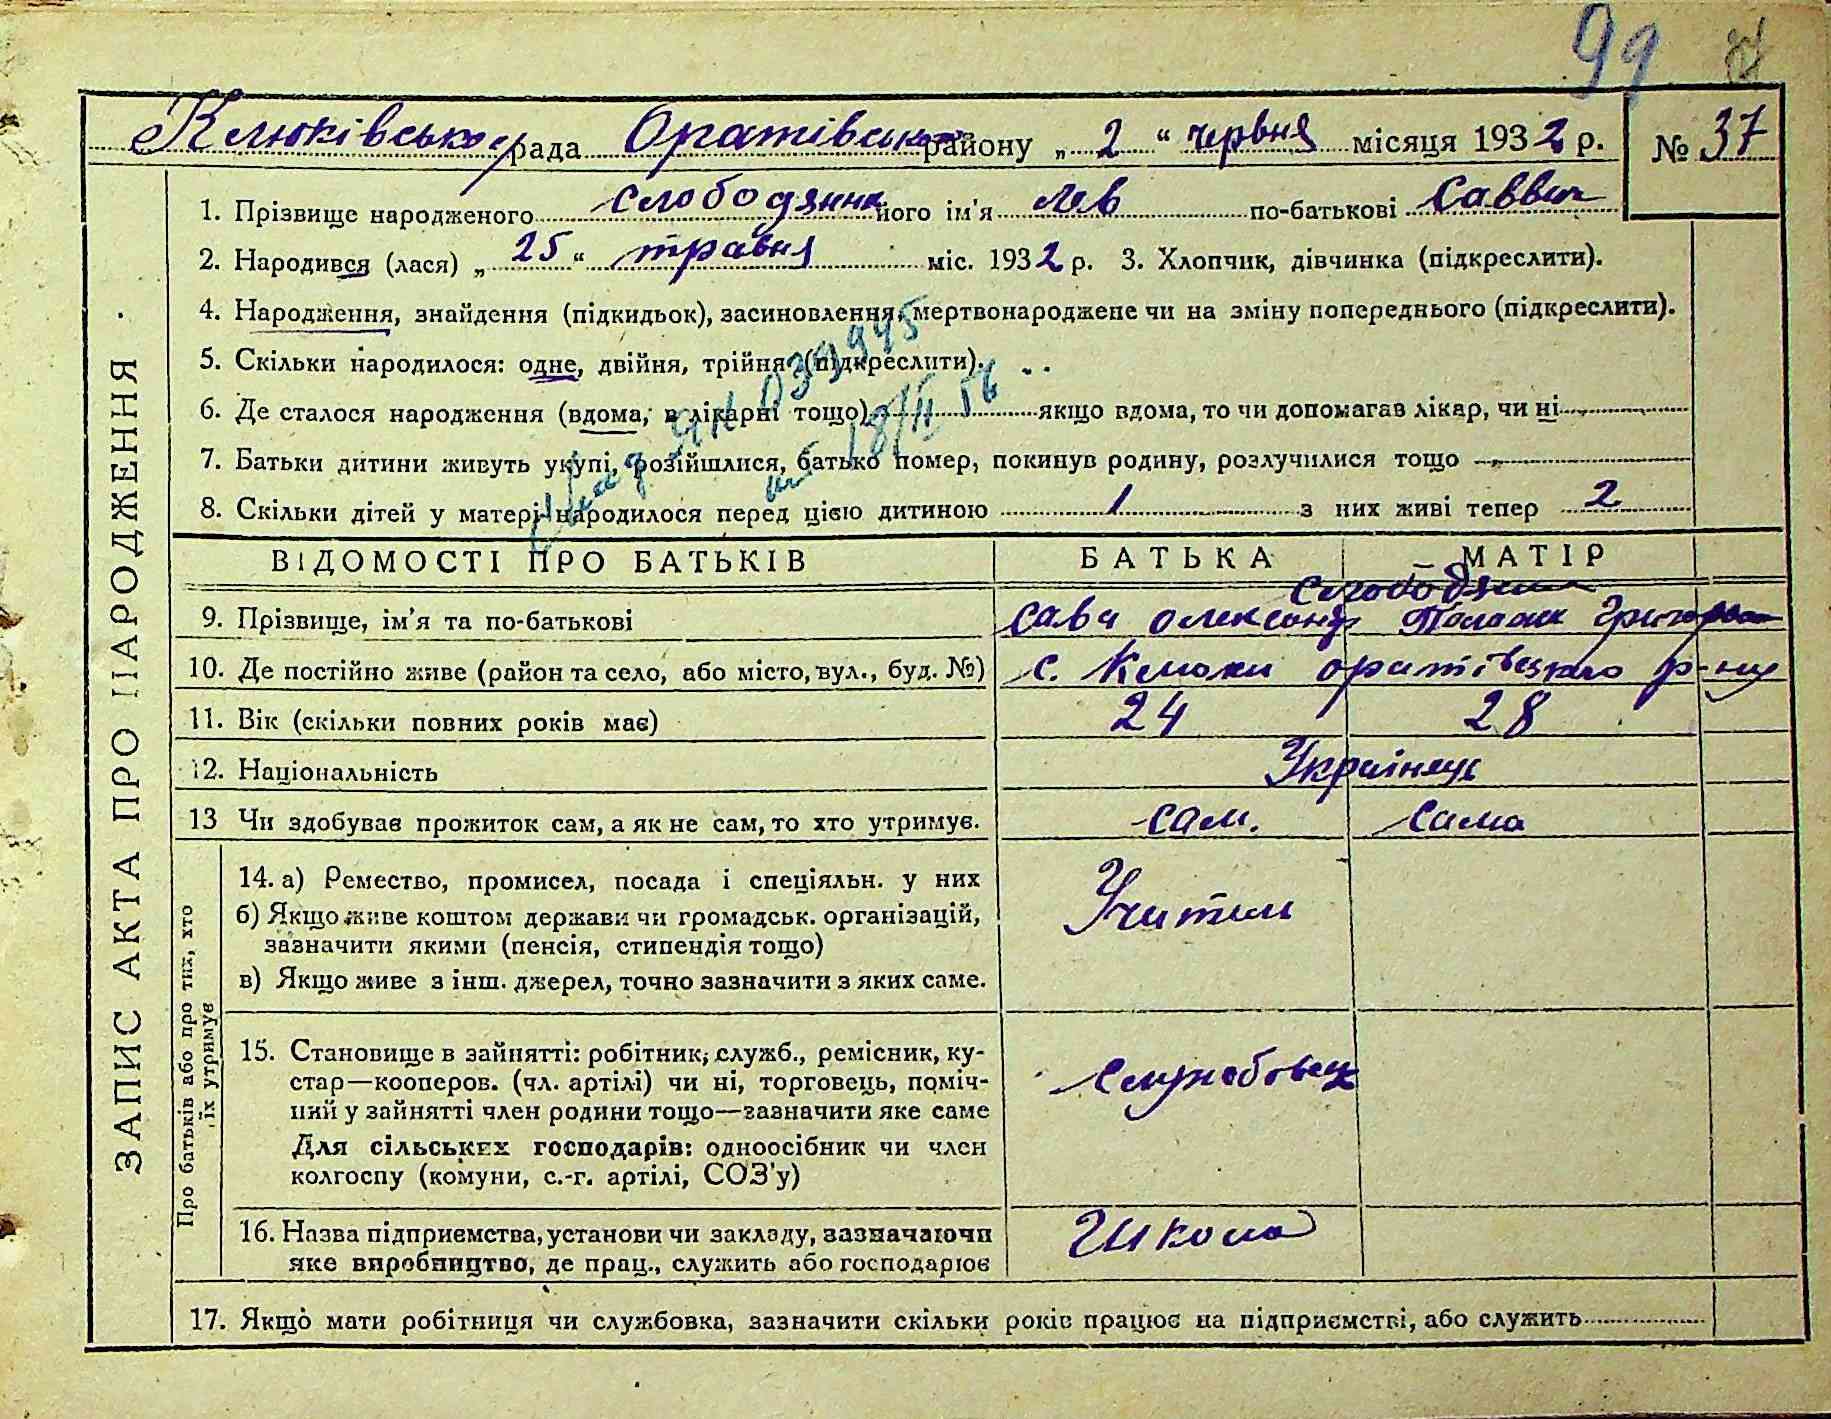 99
Клюківської рада Оратівського району „ 2 “ червня місяця 1932 р. № 37
1. Прізвище народженого Слободяник його ім'я Лев по-батькові Саввич
2. Народився (лася) „ 25 “ травня міс. 1932 р. 3. Хлопчик, дівчинка (підкреслити).
4. Народження, знайдення (підкидьок), засиновлення, мертвонароджене чи на зміну попереднього (підкреслити).
5. Скільки народилося: одне, двійня, трійня (підкреслити).
6. Де сталося народження (вдома, в лікарні тощо) якщо вдома, то чи допомагав лікар, чи ні
7. Батьки дитини живуть укупі, розійшлися, батько помер, покинув родину, розлучилися тощо
8. Скільки дітей у матері народилося перед цією дитиною 1 з них живі тепер 2
039945
18/II 56
ЗАПИС АКТА ПРО НАРОДЖЕННЯ
ВІДОМОСТІ ПРО БАТЬКІВ БАТЬКА МАТІР
9. Прізвище, ім'я та по-батькові Сава Олександр
10. Де постійно живе (район та село, або місто, вул., буд. №) с. Клюки оратівского р-ну
11. Вік (скільки повних років має) 24 28
12. Національність Українець
13 Чи здобуває прожиток сам, а як не сам, то хто утримує. сам. сама
Про батьків або про тих, хто
їх утримує
14. а) Ремество, промисел, посада і спеціяльн. у них
б) Якщо живе коштом держави чи громадськ. організацій,
зазначити якими (пенсія, стипендія тощо)
в) Якщо живе з інш. джерел, точно зазначити з яких саме.
Учитель
15. Становище в зайнятті: робітник, служб., ремісник, ку-
стар—кооперов. (чл. артілі) чи ні, торговець, поміч-
ний у зайнятті член родини тощо—зазначити яке саме
Для сільських господарів: одноосібник чи член
колгоспу (комуни, с.-г. артілі, СОЗ'у)
Службовець
16. Назва підприємства, установи чи закладу, зазначаючи
яке виробництво, де прац., служить або господарює
Школа
17. Якщо мати робітниця чи службовка, зазначити скільки років працює на підприємстві, або служить